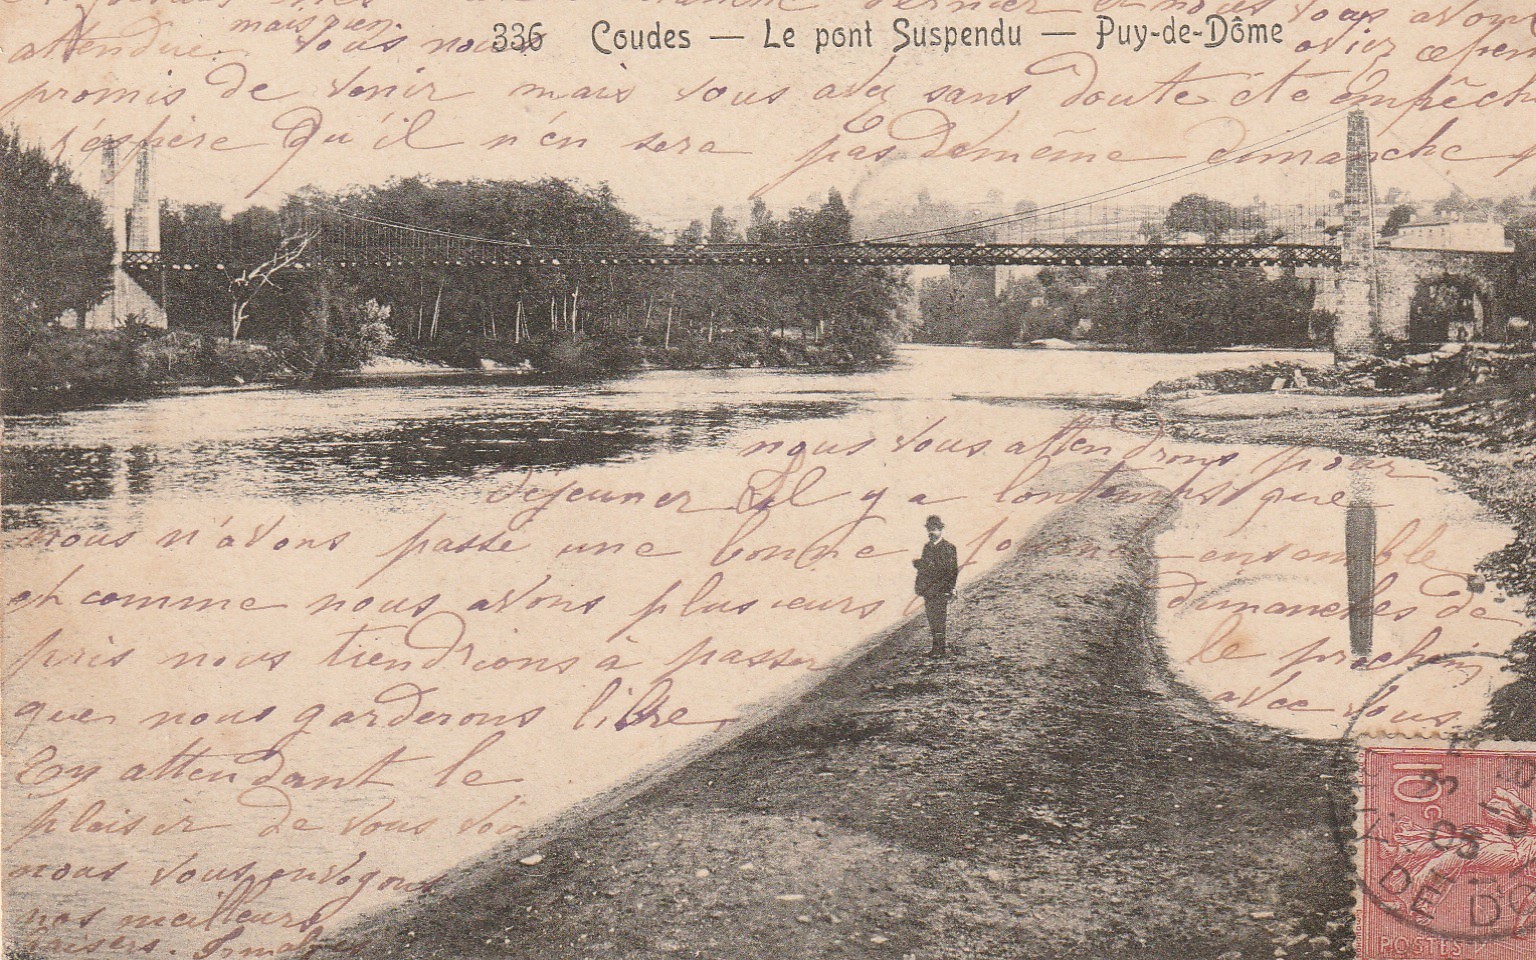 dernier et nous vous avons
attendue. mais rien. vous nous aviez cepen
336 Coudes — Le pont Suspendu — Puy-de-Dôme
promis de venir mais vous avez sans doute été empêch
j'éspère qu'il n'en sera pas de même dimanche
nous vous attendrons pour
dejeuner Il y a lontemps que
nous n'avons passé une bonne journée ensemble
et comme nous avons plusieurs dimanches de
pris nous tiendrions à passer le prochain
que nous garderons libre avec vous
En attendant le
plaisir de vous voir
nous vous envoyons
nos meilleurs
baisers.
10c
POSTES
3
05
DE D